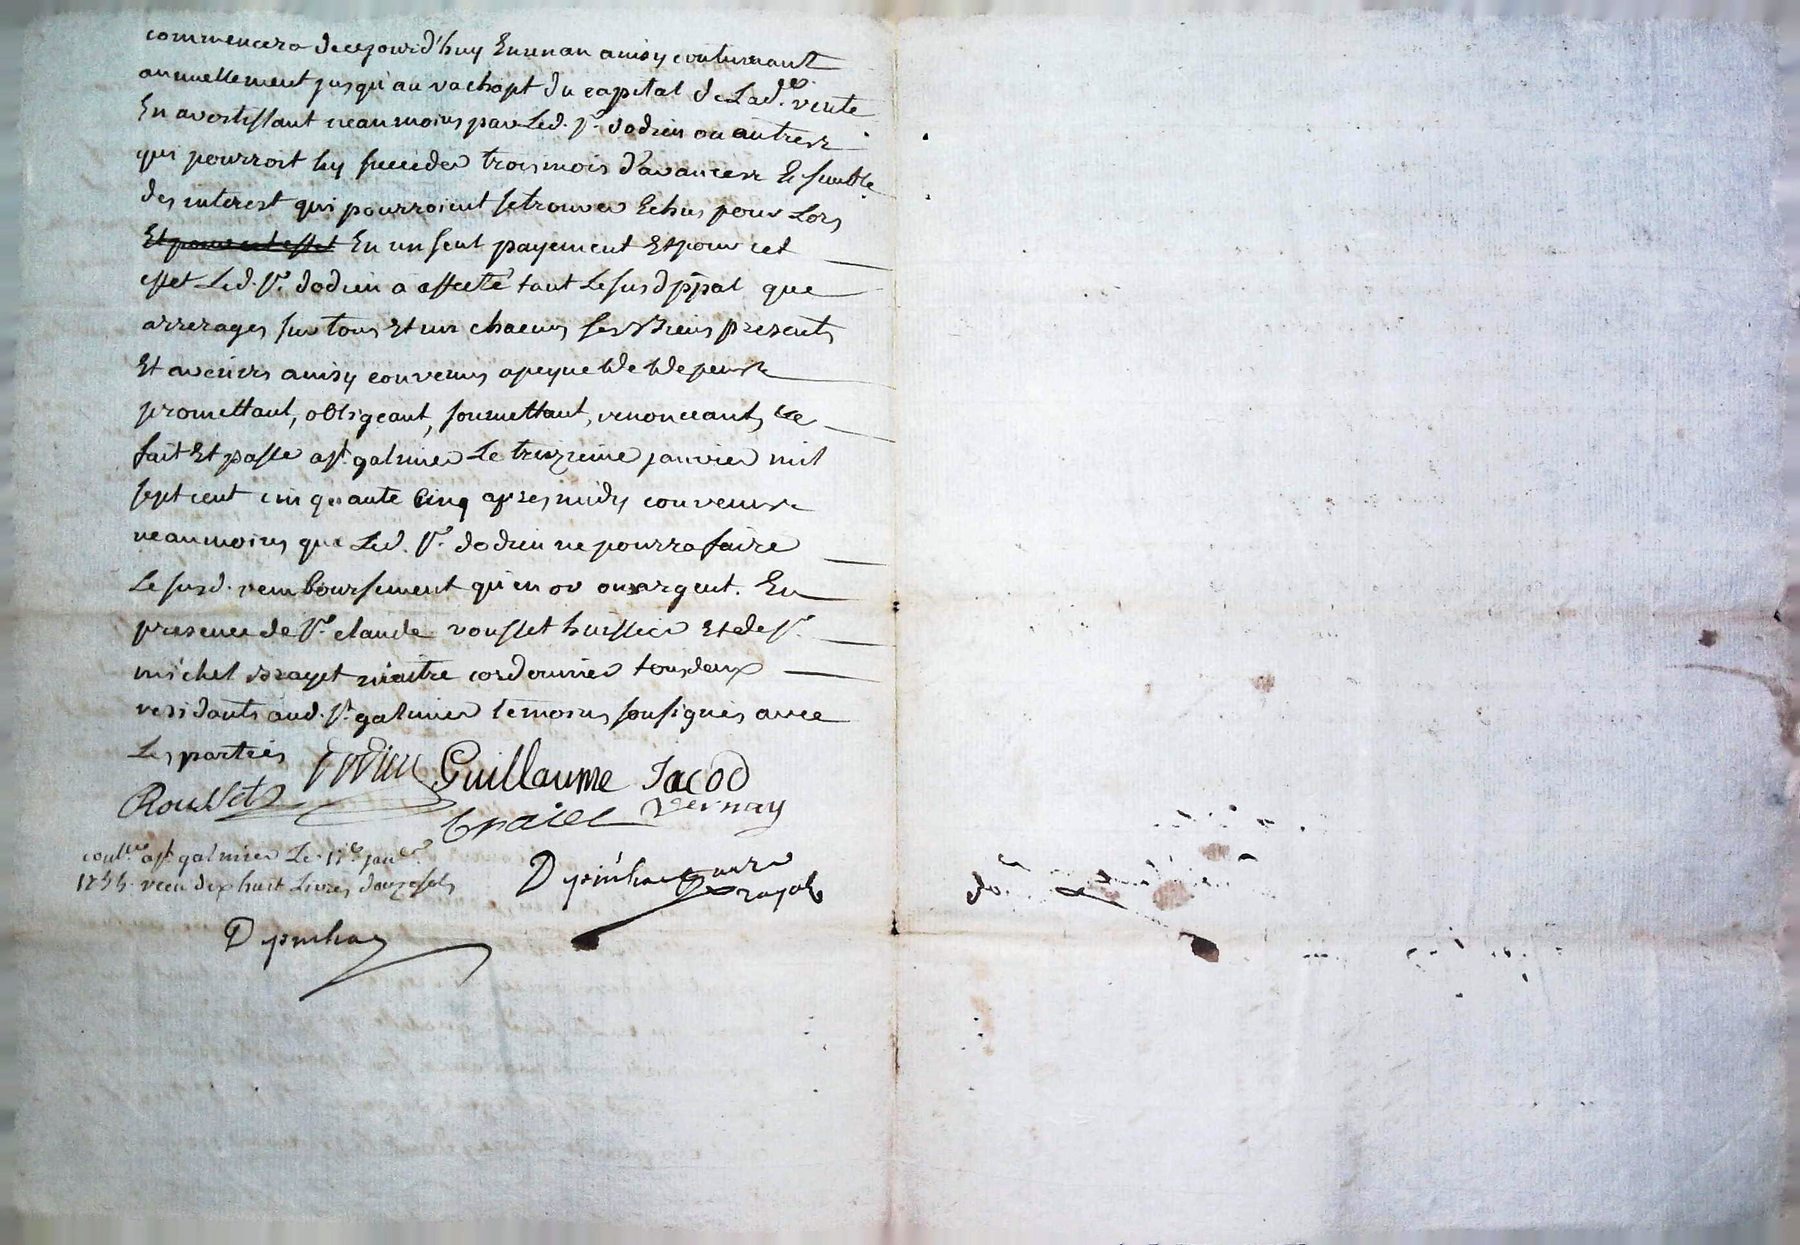 commencera de ce jourd'huy En un an ainsy continuant
annuellement jusqu'au rachapt du capital de Lad.e rente
En avertissant neanmoins par Led. Sr. dodieu ou autres
qui pourroit luy succeder trois mois d'avance Ensemble
des interest qui pourroient se trouver Echus pour Lors
Et pour cet effet En un seul payement Et pour cet
effet Led. Sr. dodieu a affecté tant Le susd ppal que
arrerages sur tous Et un chacuns ses Biens presents
Et avenirs ainsy convenus apeyne de depens
promettant, obligeant, soumettant, renonceant, &c
fait Et passé a St. galmier Le treizieme janvier mil
sept cent cinquante Cinq apres midy convenus
neanmoins que Led. Sr. dodieu ne pourra faire
Le susd. remboursement qu'en or ou argent. En
presence de Sr. claude rousset huissier Et de Sr.
michel maitre cordonnier tous deux
residants aud. St. galmier temoins sousignés avec
Les parties Dodieu Guillaume Jacod
Rousset Vernay
coullé a St. galmier Le janer.
1755. receu dix huit Livres douze sols